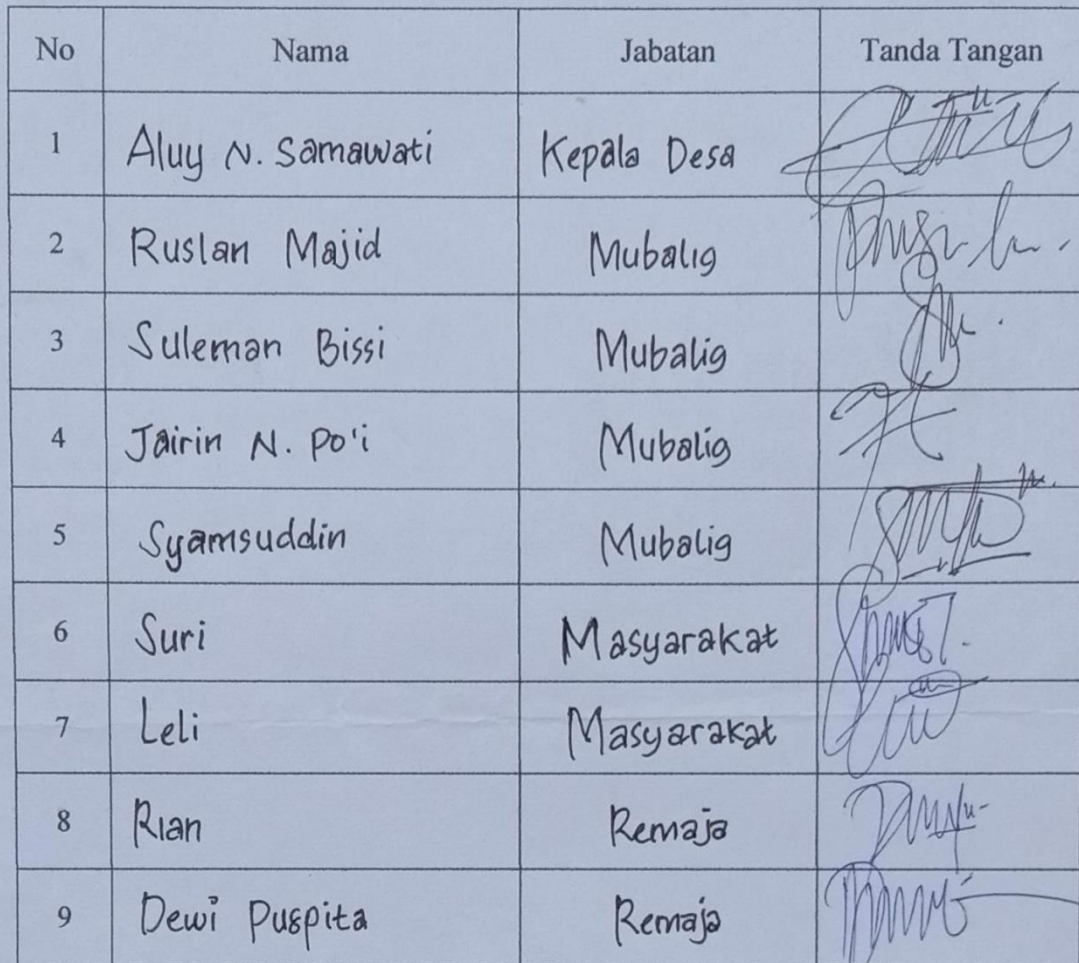 No Nama Jabatan Tanda Tangan
1 Aluy N. Samawati Kepala Desa
2 Ruslan Majid Mubalig
3 Suleman Bissi Mubalig
4 Jairin N. Po'i Mubalig
5 Syamsuddin Mubalig
6 Suri Masyarakat
7 Leli Masyarakat
8 Rian Remaja
9 Dewi Puspita Remaja